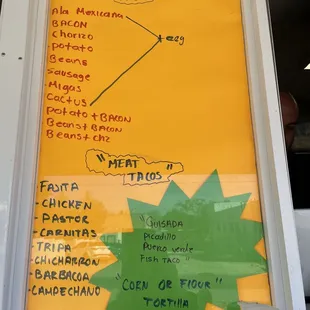 Ala Mexicana
BACON
Chorizo
potato
Beans
Sausage
Migas
CACTUS
potato + BACON
Beans+ BACON
Beans+ chz
* egg
"MEAT"
TACOS
FAJITA
- CHICKEN
- PASTOR
- CARNITAS
- TRIPA
- CHICHARRON
- BARBACOA
- CAMPECHANO
"GUISADA
picadillo
Puerco verde
FISH TACO"
"CORN OR FlOUR"
TORTILLA